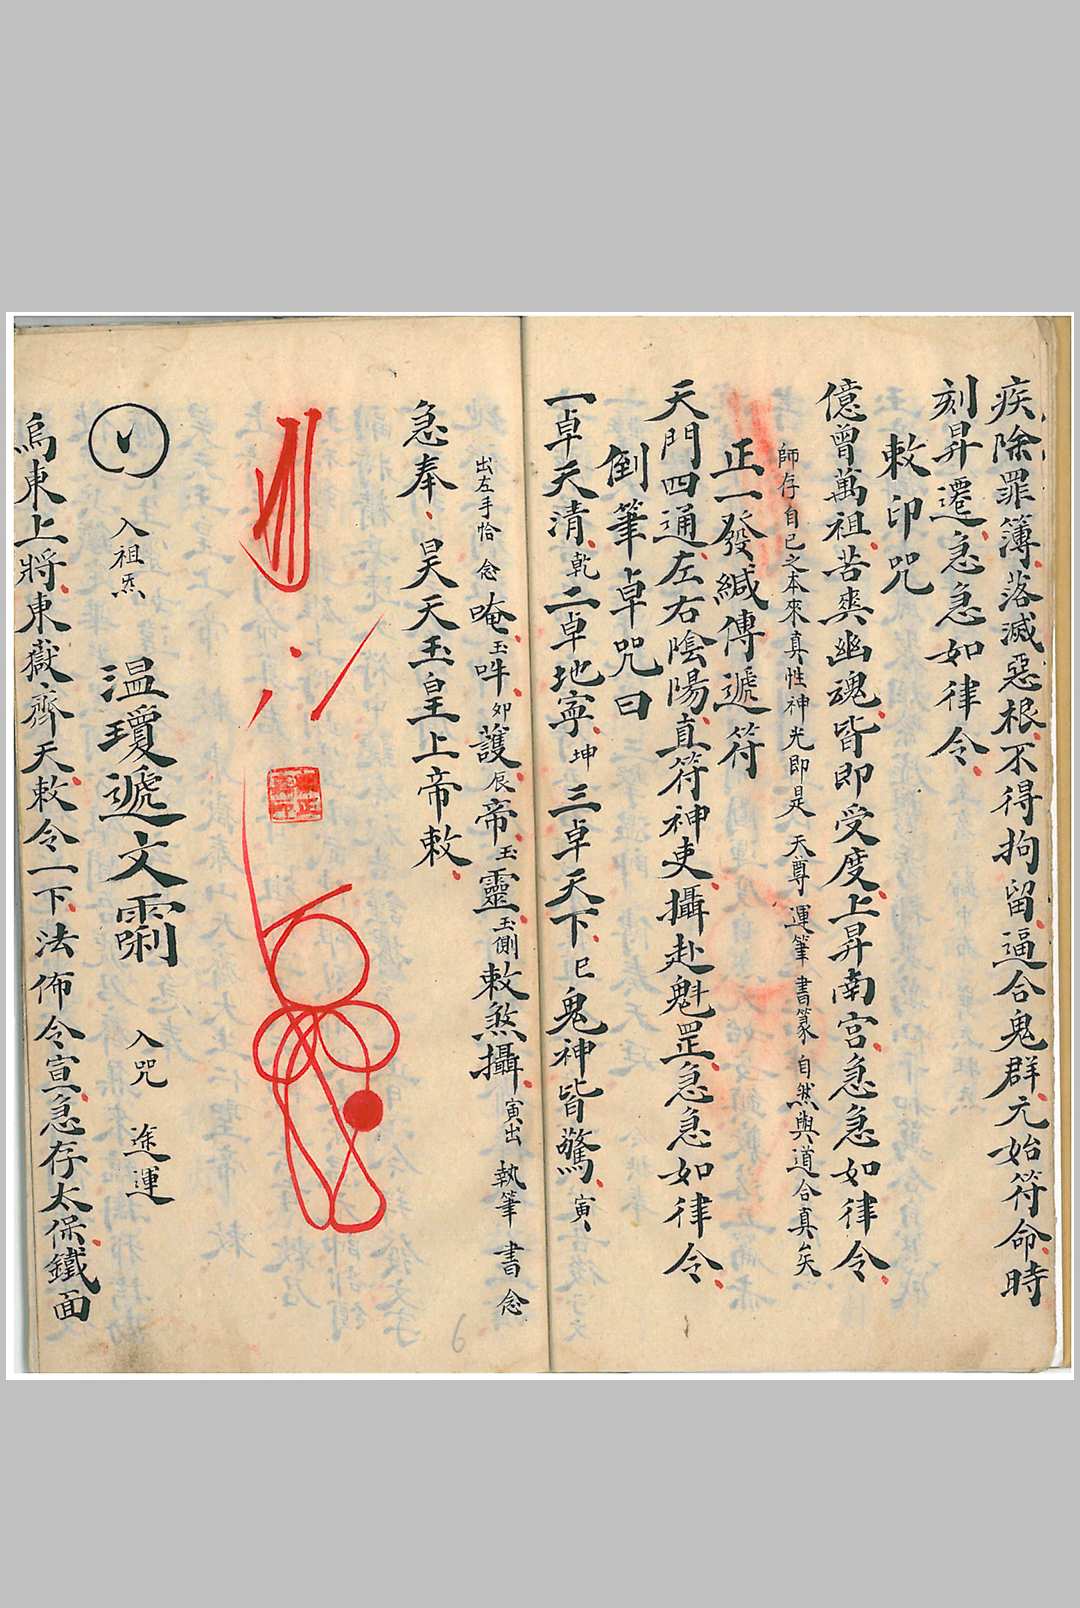 疾除罪簿落滅惡根不得拘留逼合鬼群元始符命時
刻昇遷急急如律令
敕印咒
億曾萬祖苦爽幽魂皆即受度上昇南宮急急如律令
師存自已之本來真性神光即是 天尊 運筆 書篆 自然與道合真矣
正一發緘傳遞符
天門四通左右陰陽真符神吏攝赴魁罡急急如律令
倒筆卓咒曰
一卓天清乾二卓地寧坤三卓天下巳鬼神皆驚寅
出左手恰 念唵玉吽卯護辰帝玉靈玉側敕煞攝寅出 執筆 書 念
急奉昊天玉皇上帝敕
入祖炁 溫瓊遞文 入咒 途運
烏東上將東嶽齊天敕令一下法佈令宣急存太保鐵面